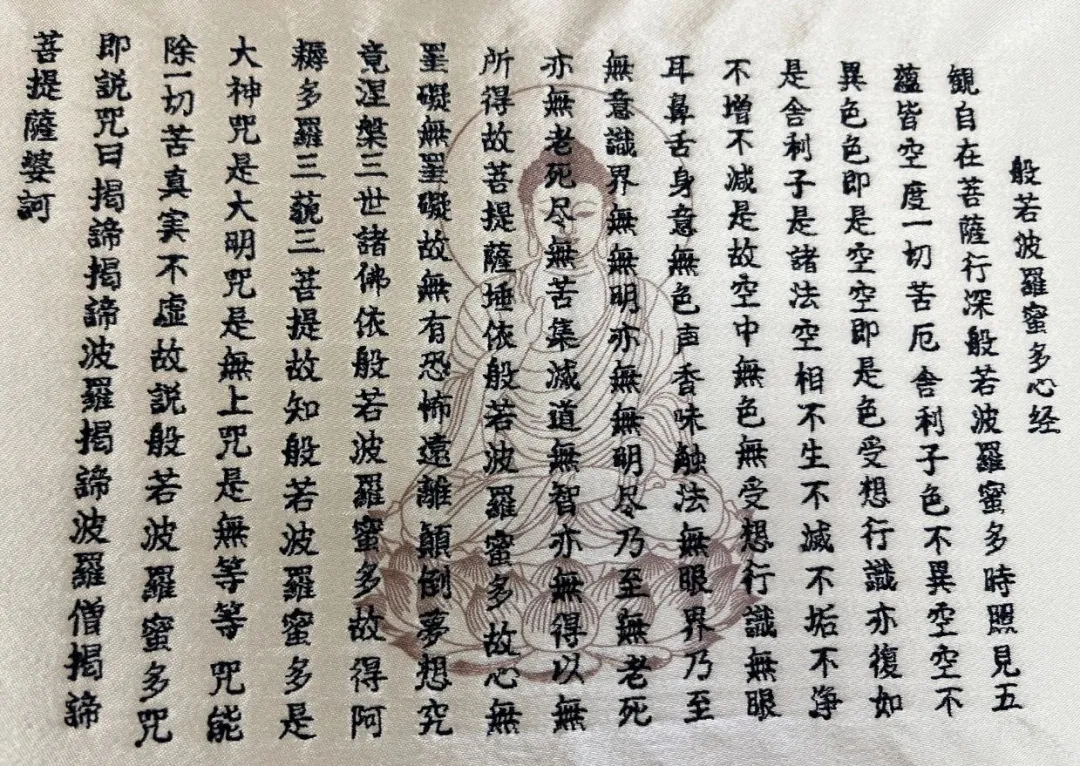 般若波羅蜜多心经
観自在菩薩行深般若波羅蜜多時照見五
蘊皆空度一切苦厄舎利子色不異空空不
異色色即是空空即是色受想行識亦復如
是舎利子是諸法空相不生不滅不垢不浄
不増不減是故空中無色無受想行識無眼
耳鼻舌身意無色声香味触法無眼界乃至
無意識界無無明亦無無明尽乃至無老死
亦無老死尽無苦集滅道無智亦無得以無
所得故菩提薩埵依般若波羅蜜多故心無
罣礙無罣礙故無有恐怖遠離顛倒夢想究
竟涅槃三世諸佛依般若波羅蜜多故得阿
耨多羅三藐三菩提故知般若波羅蜜多是
大神咒是大明咒是無上咒是無等等咒能
除一切苦真実不虚故説般若波羅蜜多咒
即説咒曰揭諦揭諦波羅揭諦波羅僧揭諦
菩提薩婆訶